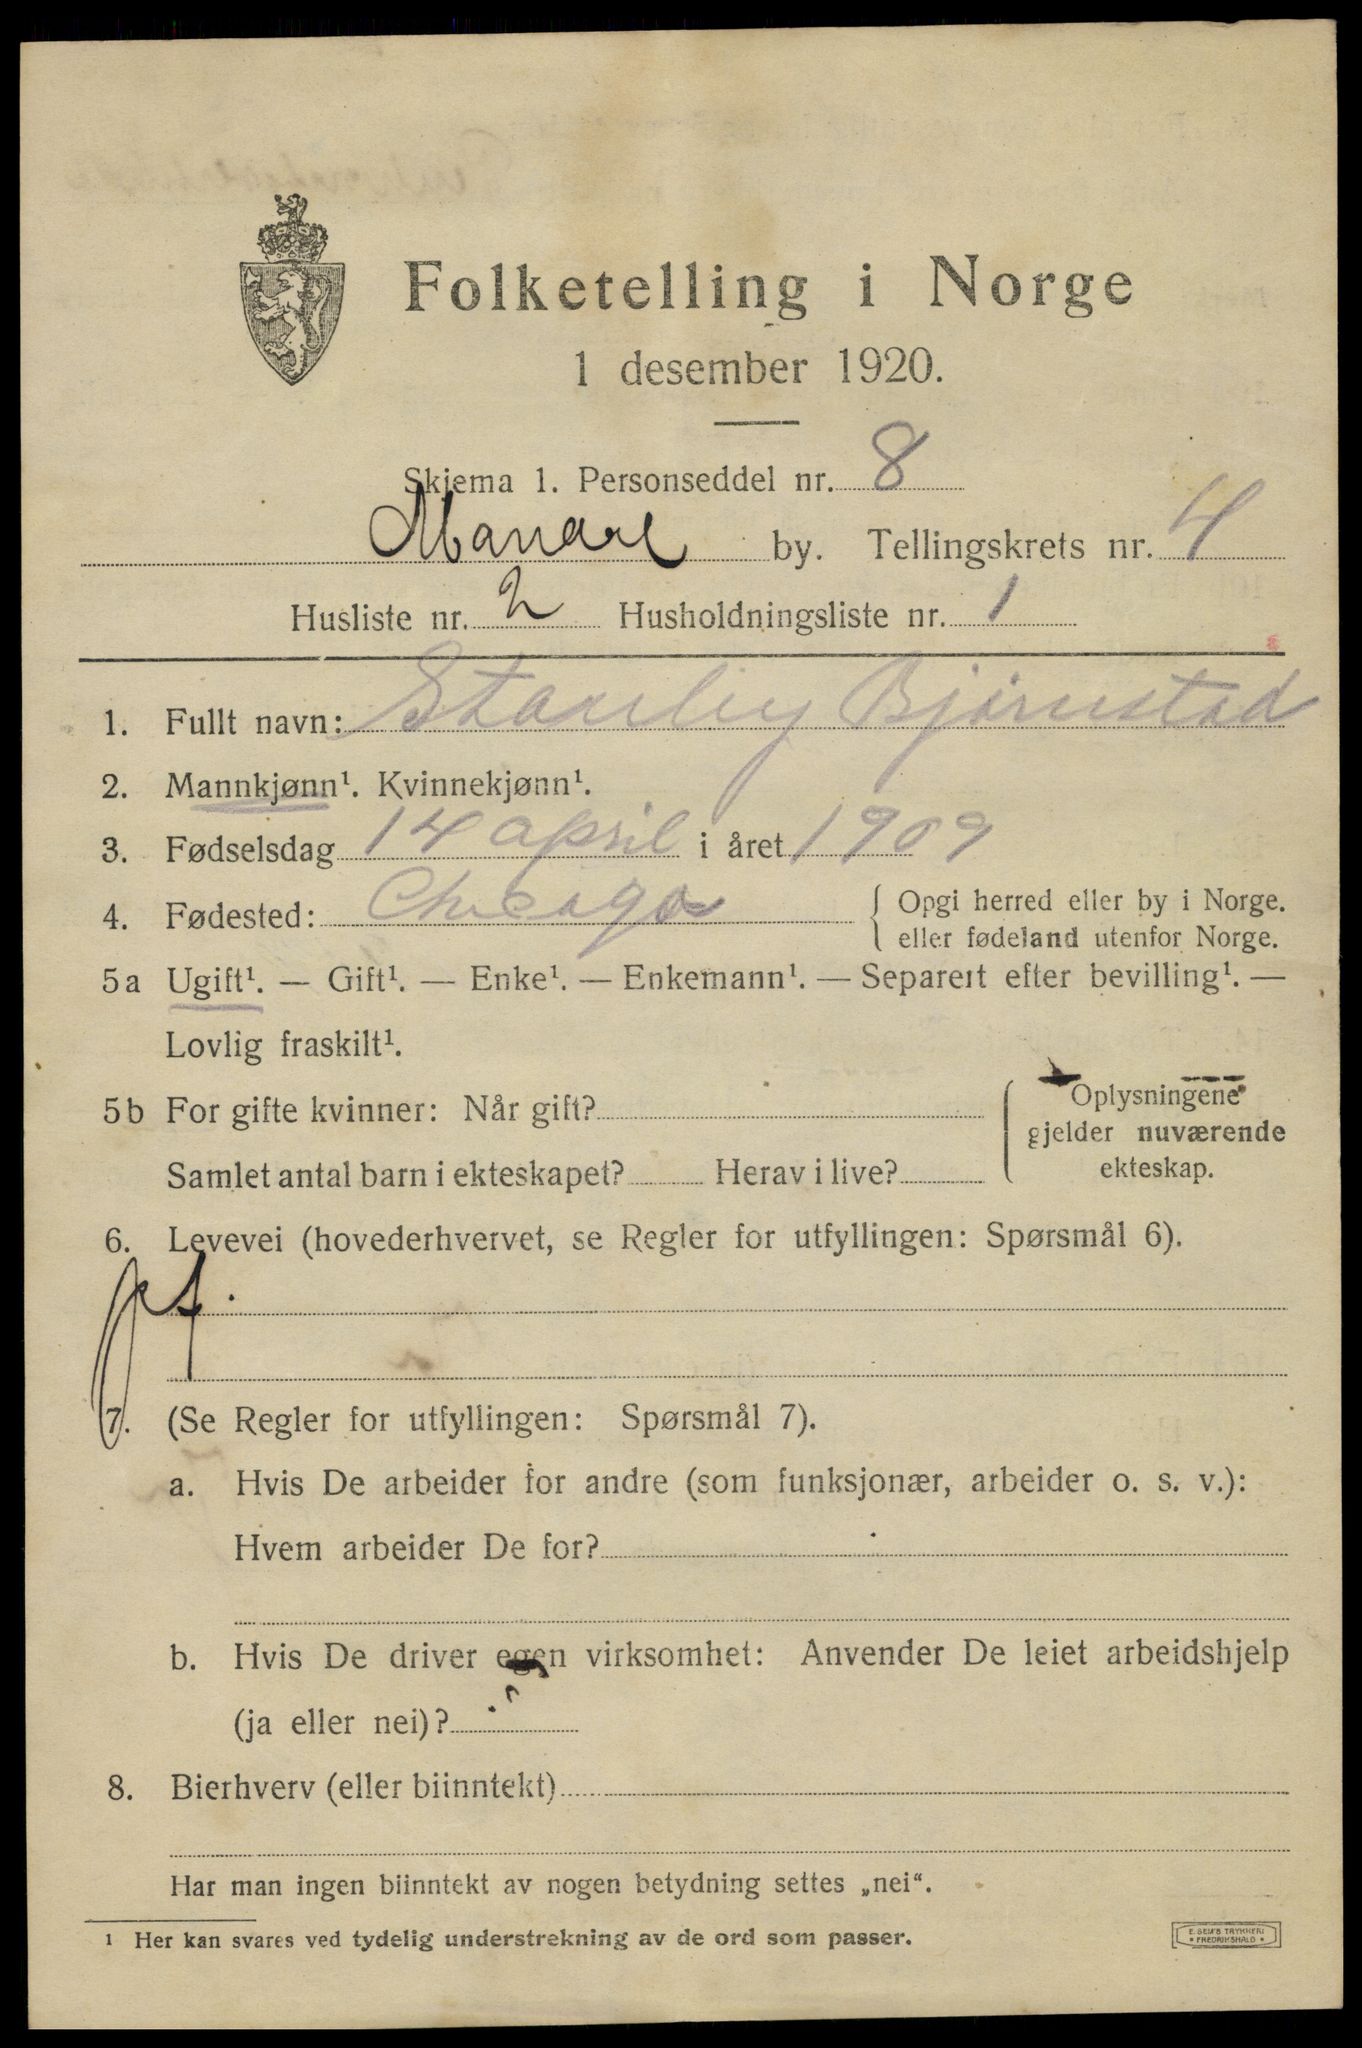 Folketelling i Norge
1 desember 1920.
Skjema 1. Personseddel nr. 8
Mandal by. Tellingskrets nr. 4
Husliste nr. 2 Husholdningsliste nr. 1
1. Fullt navn: Stanley Bjørnstad
2. Mannkjønn¹. Kvinnekjønn¹.
3. Fødselsdag 14 april i året 1909
4. Fødested: Chicago { Opgi herred eller by i Norge.
eller fødeland utenfor Norge.
5a Ugift¹. — Gift¹. — Enke¹. — Enkemann¹. — Separert efter bevilling¹. —
Lovlig fraskilt¹.
5b For gifte kvinner: Når gift? { Oplysningene
gjelder nuværende
Samlet antal barn i ekteskapet? Herav i live? ekteskap.
6. Levevei (hovederhvervet, se Regler for utfyllingen: Spørsmål 6).
7. (Se Regler for utfyllingen: Spørsmål 7).
a. Hvis De arbeider for andre (som funksjonær, arbeider o. s. v.):
Hvem arbeider De for?
b. Hvis De driver egen virksomhet: Anvender De leiet arbeidshjelp
(ja eller nei)?
8. Bierhverv (eller biinntekt)
Har man ingen biinntekt av nogen betydning settes „nei“.
1 Her kan svares ved tydelig understrekning av de ord som passer.
E. SEM'S TRYKKERI
• FREDRIKSHALD •